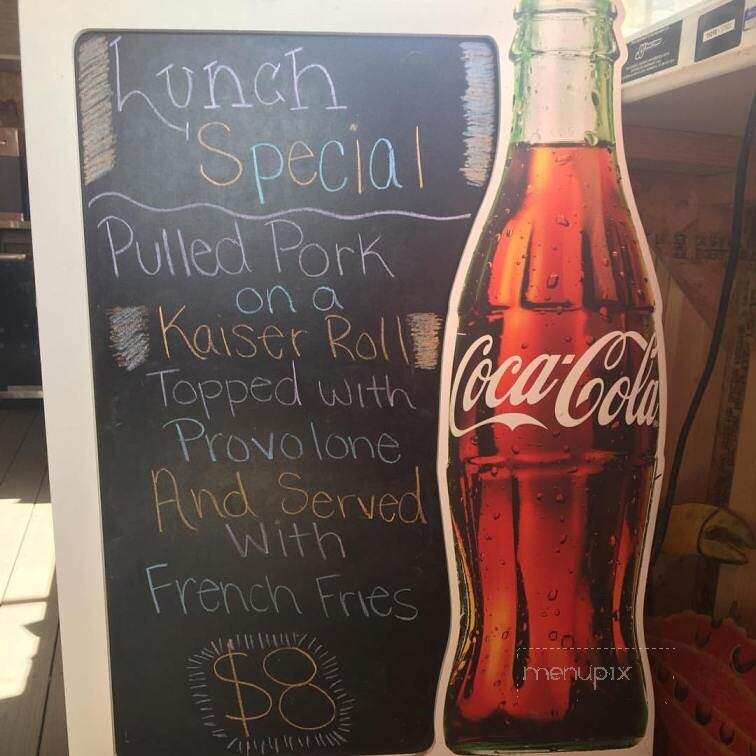 Lunch
Special
Pulled Pork
on a
Kaiser Roll
Topped with
Provolone
And Served
with
French Fries
$8
Coca-Cola
menupix